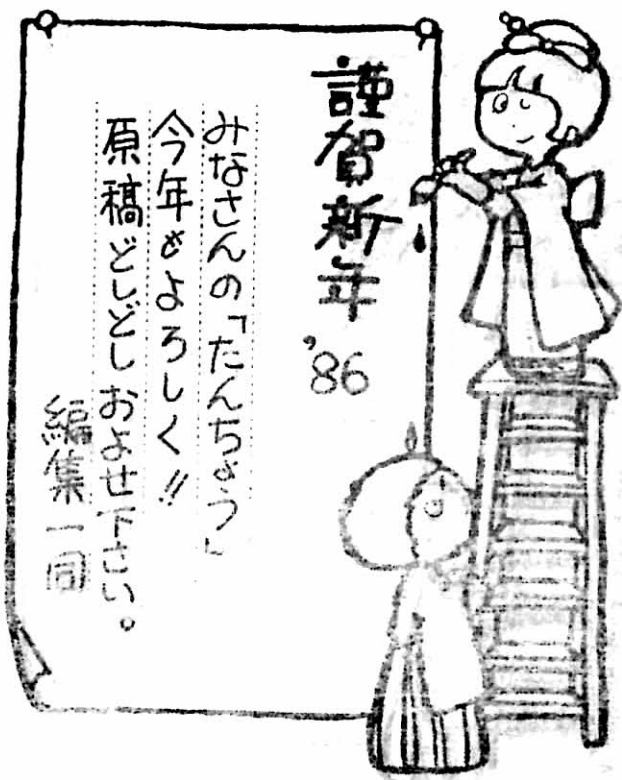 謹賀新年
'86
みなさんの「たんちょう」
今年もよろしく!!
原稿どしどしおよせ下さい。
編集一同